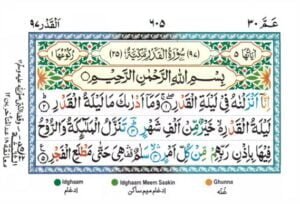 القدر ٩٧ ٦٠٥ عم ٣٠
اٰیاتها ٥ (٩٧) سُوْرَةُ الْقَدْرِ مَكِّیَّةٌ (٢٥) رکوعها ١
بِسْمِ اللّٰهِ الرَّحْمٰنِ الرَّحِیْمِ
اِنَّاۤ اَنْزَلْنٰهُ فِیْ لَیْلَةِ الْقَدْرِ ۝١ وَمَاۤ اَدْرٰىكَ مَا لَیْلَةُ الْقَدْرِ ۝٢
لَیْلَةُ الْقَدْرِ خَیْرٌ مِّنْ اَلْفِ شَهْرٍ ۝٣ تَنَزَّلُ الْمَلٰٓىِٕكَةُ وَالرُّوْحُ
فِیْهَا بِاِذْنِ رَبِّهِمْ مِّنْ كُلِّ اَمْرٍ ۝٤ سَلٰمٌ هِیَ حَتّٰی مَطْلَعِ الْفَجْرِ ۝٥
Idghaam Idghaam Meem Saakin Ghunna
إدغام إدغام میم ساکن غنّه